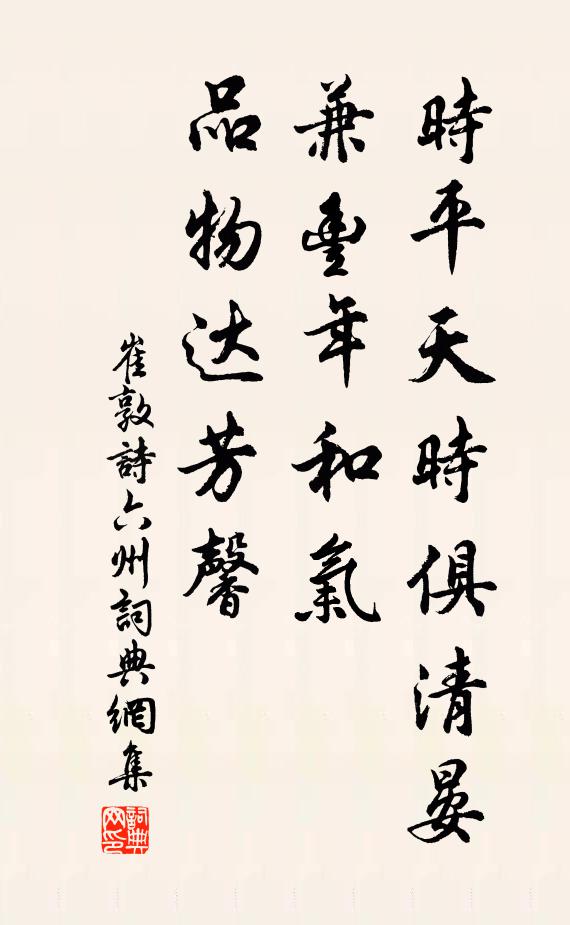 時平天時俱清晏
兼豐年和氣
品物达芳馨
崔敦詩六州詞典網集
詞典网印